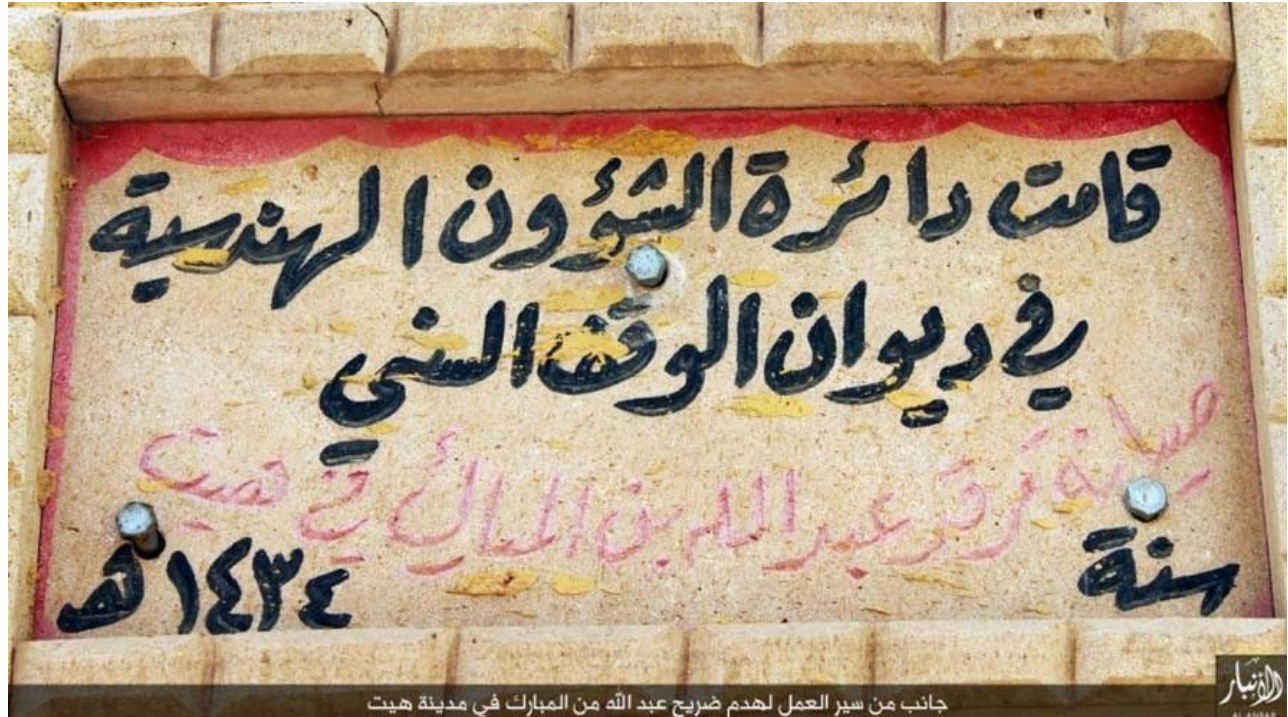 قامت دائرة الشؤون الهندسية
في ديوان الوقف السني
صيانة مرقد عبد الله بن المبارك في هيت
سنة ١٤٣٤ هـ
جانب من سير العمل لهدم ضريح عبد الله من المبارك في مدينة هيت
الأنبار
AL ANBAR